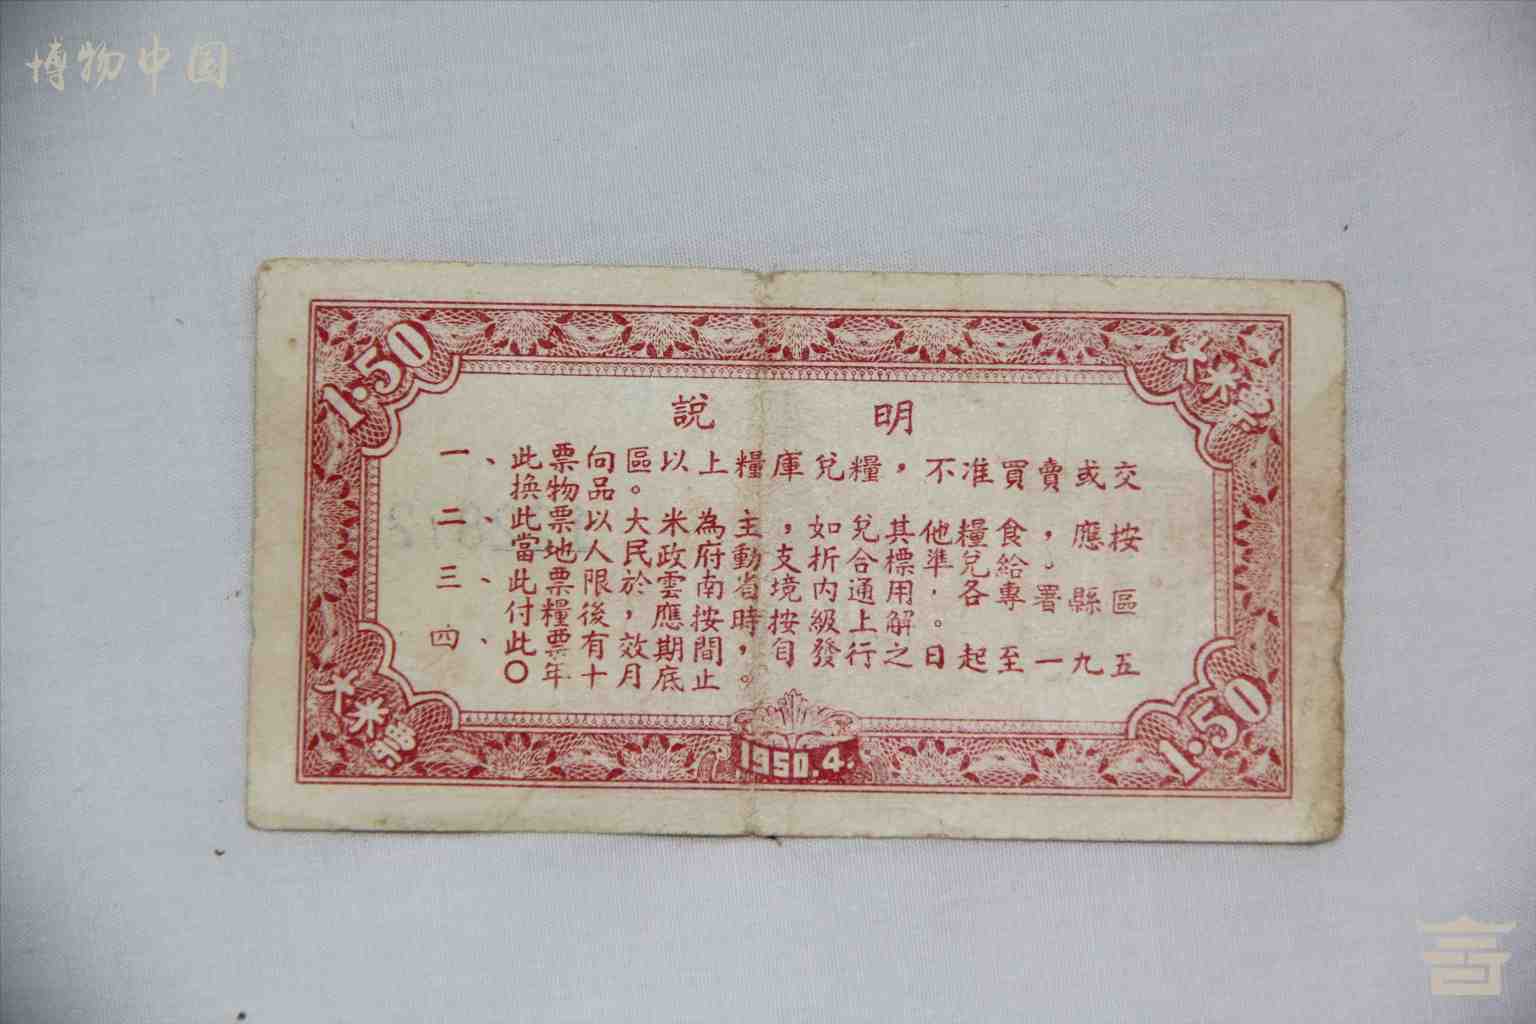 博物中国
1.50
大米票
說明
一、此票向區以上糧庫兌糧，不准買賣或交
換物品。
二、此票以大米為主，如兌其他糧食，應按
當地人民政府動支折合標準兌給。
三、此票限於雲南省境內通用，各專署縣區
付糧後，應按時按級上解。
四、此票有效期間自發行之日起至一九五
〇年十月底止。
大米票
1.50
1950.4.